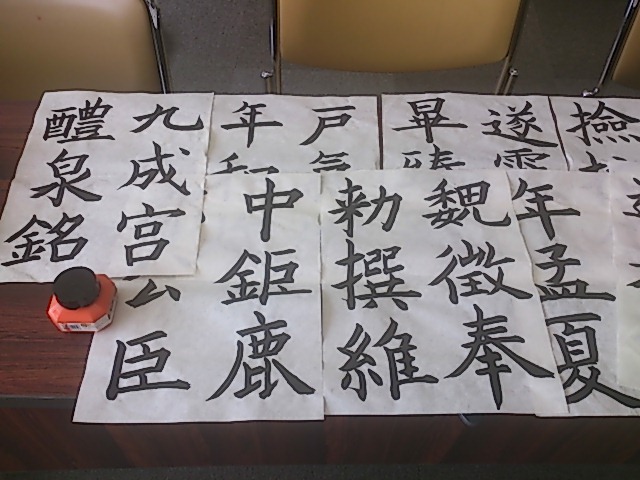 九成宮
醴泉銘
戸
年
遂
畢
撿
中鉅鹿
公臣
魏徴奉
勅撰維
年孟夏